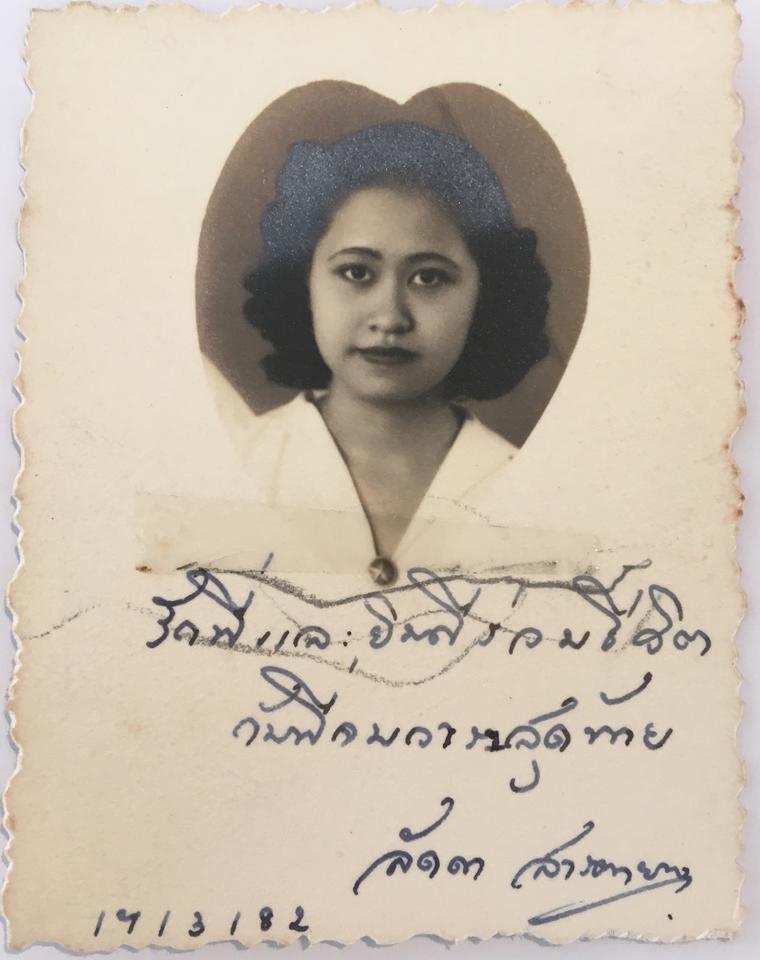 รักพี่และยินดีร่วมชีวิต
กับพี่จนวาระสุดท้าย
ลัดดา
17/3/82